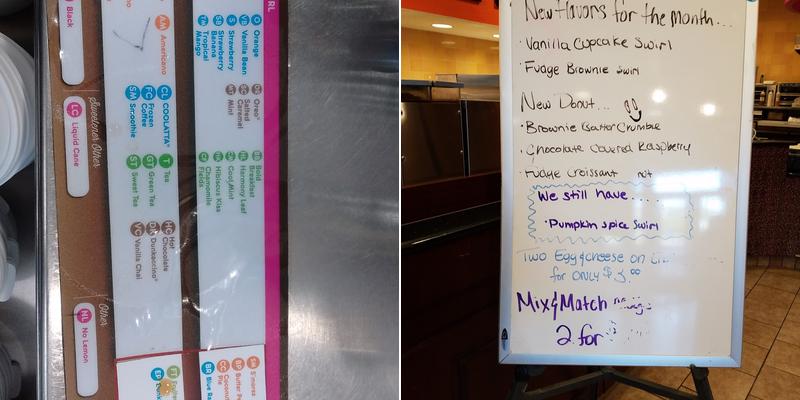 RL
O Orange
VB Vanilla Bean
S Strawberry
SB Strawberry Banana
Tropical Mango
Oreo®
Salted Caramel
Mint
Bold Breakfast
Harmony Leaf
Cool Mint
Hibiscus Kiss
Chamomile Fields
S'mores
Butter P
Coconut
Pie
Blue Ra
AM Americano
CL COOLATTA®
FC Frozen Coffee
SM Smoothie
T Tea
GT Green Tea
ST Sweet Tea
HC Hot Chocolate
DK Dunkaccino®
VC Vanilla Chai
Black
Sweetener Other
LC Liquid Cane
Other
NL No Lemon
New Flavors for the month...
· Vanilla Cupcake Swirl
· Fudge Brownie Swirl
New Donut...
· Brownie Batter Crumble
· Chocolate Covered Raspberry
· Fudge Croissant not
We still have....
· Pumpkin spice Swirl
Two Egg & cheese on
for ONLY $3.00
Mix & Match
2 for